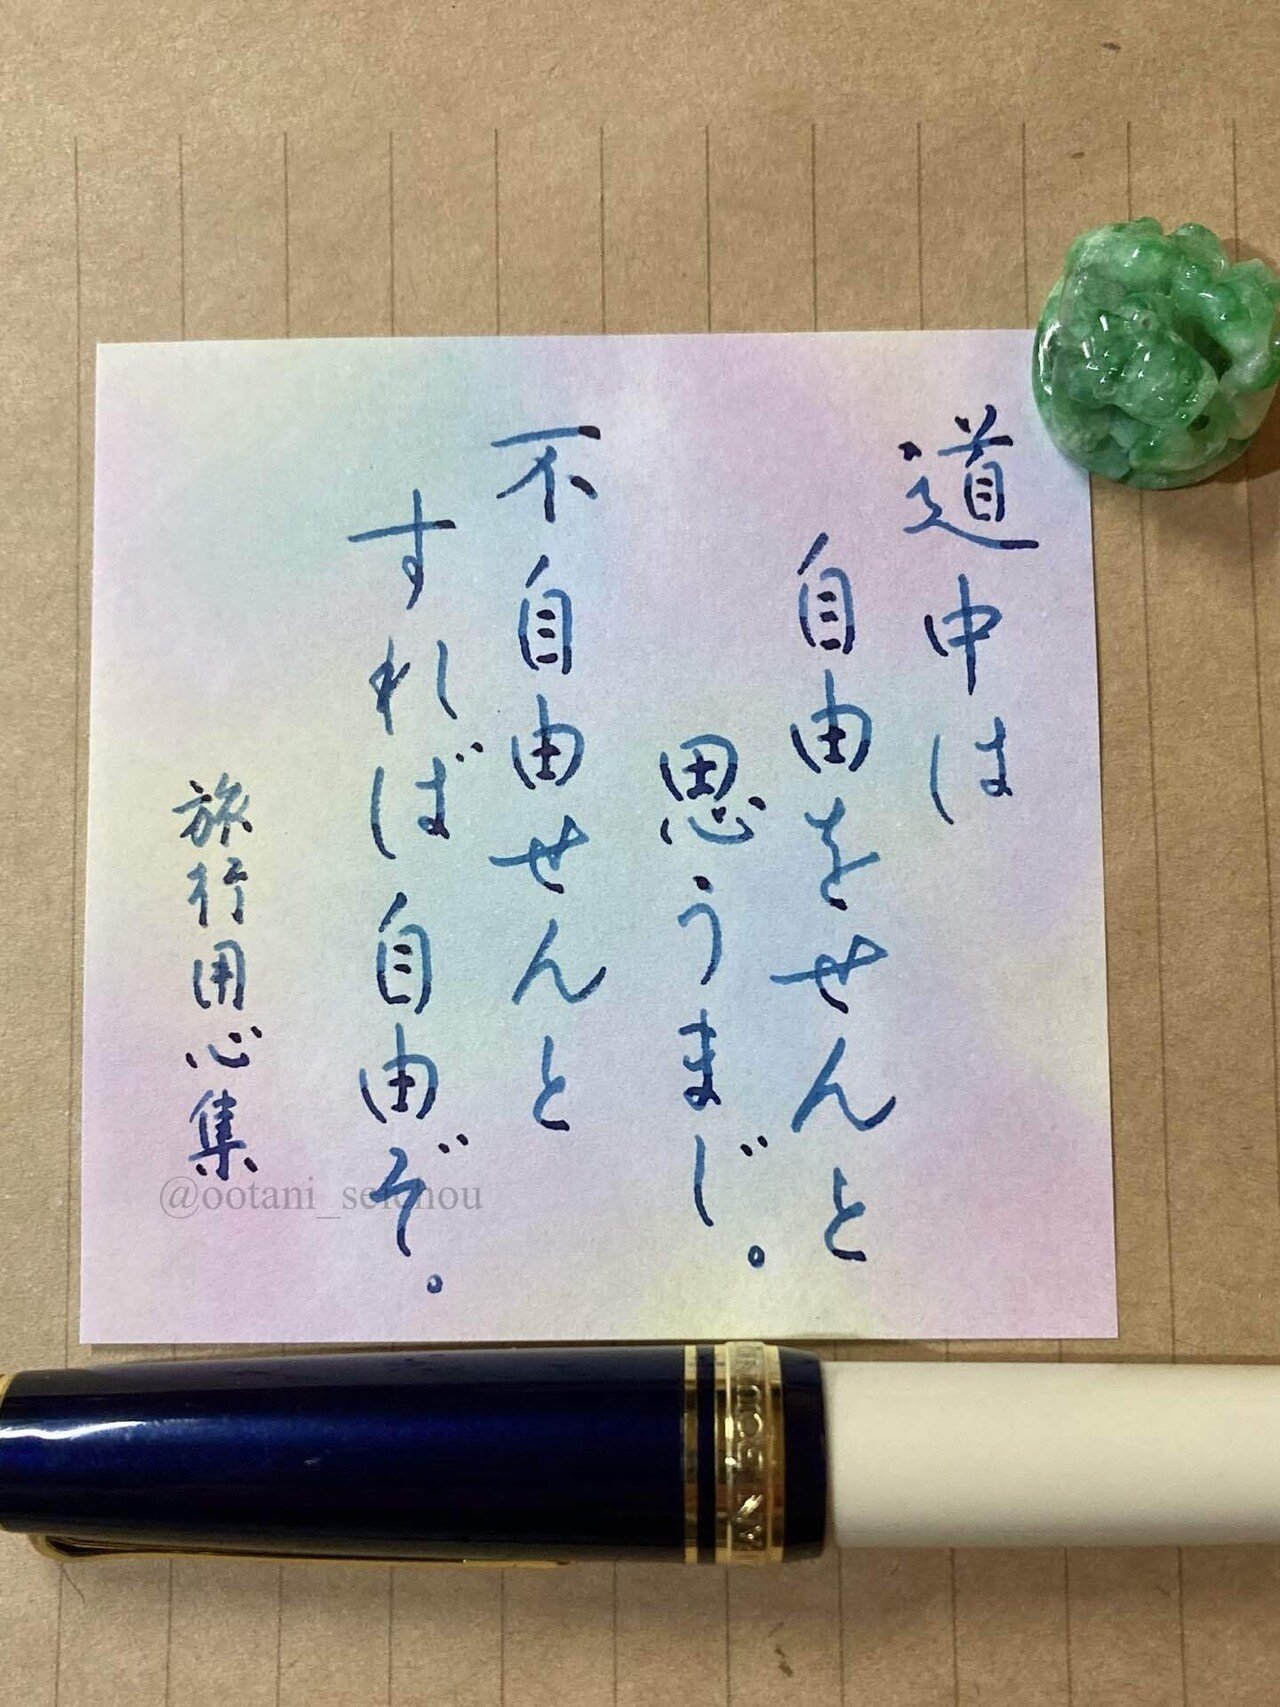 道中は
自由をせんと
思うまじ。
不自由せんと
すれば自由ぞ。
旅行用心集
@ootani_seichou